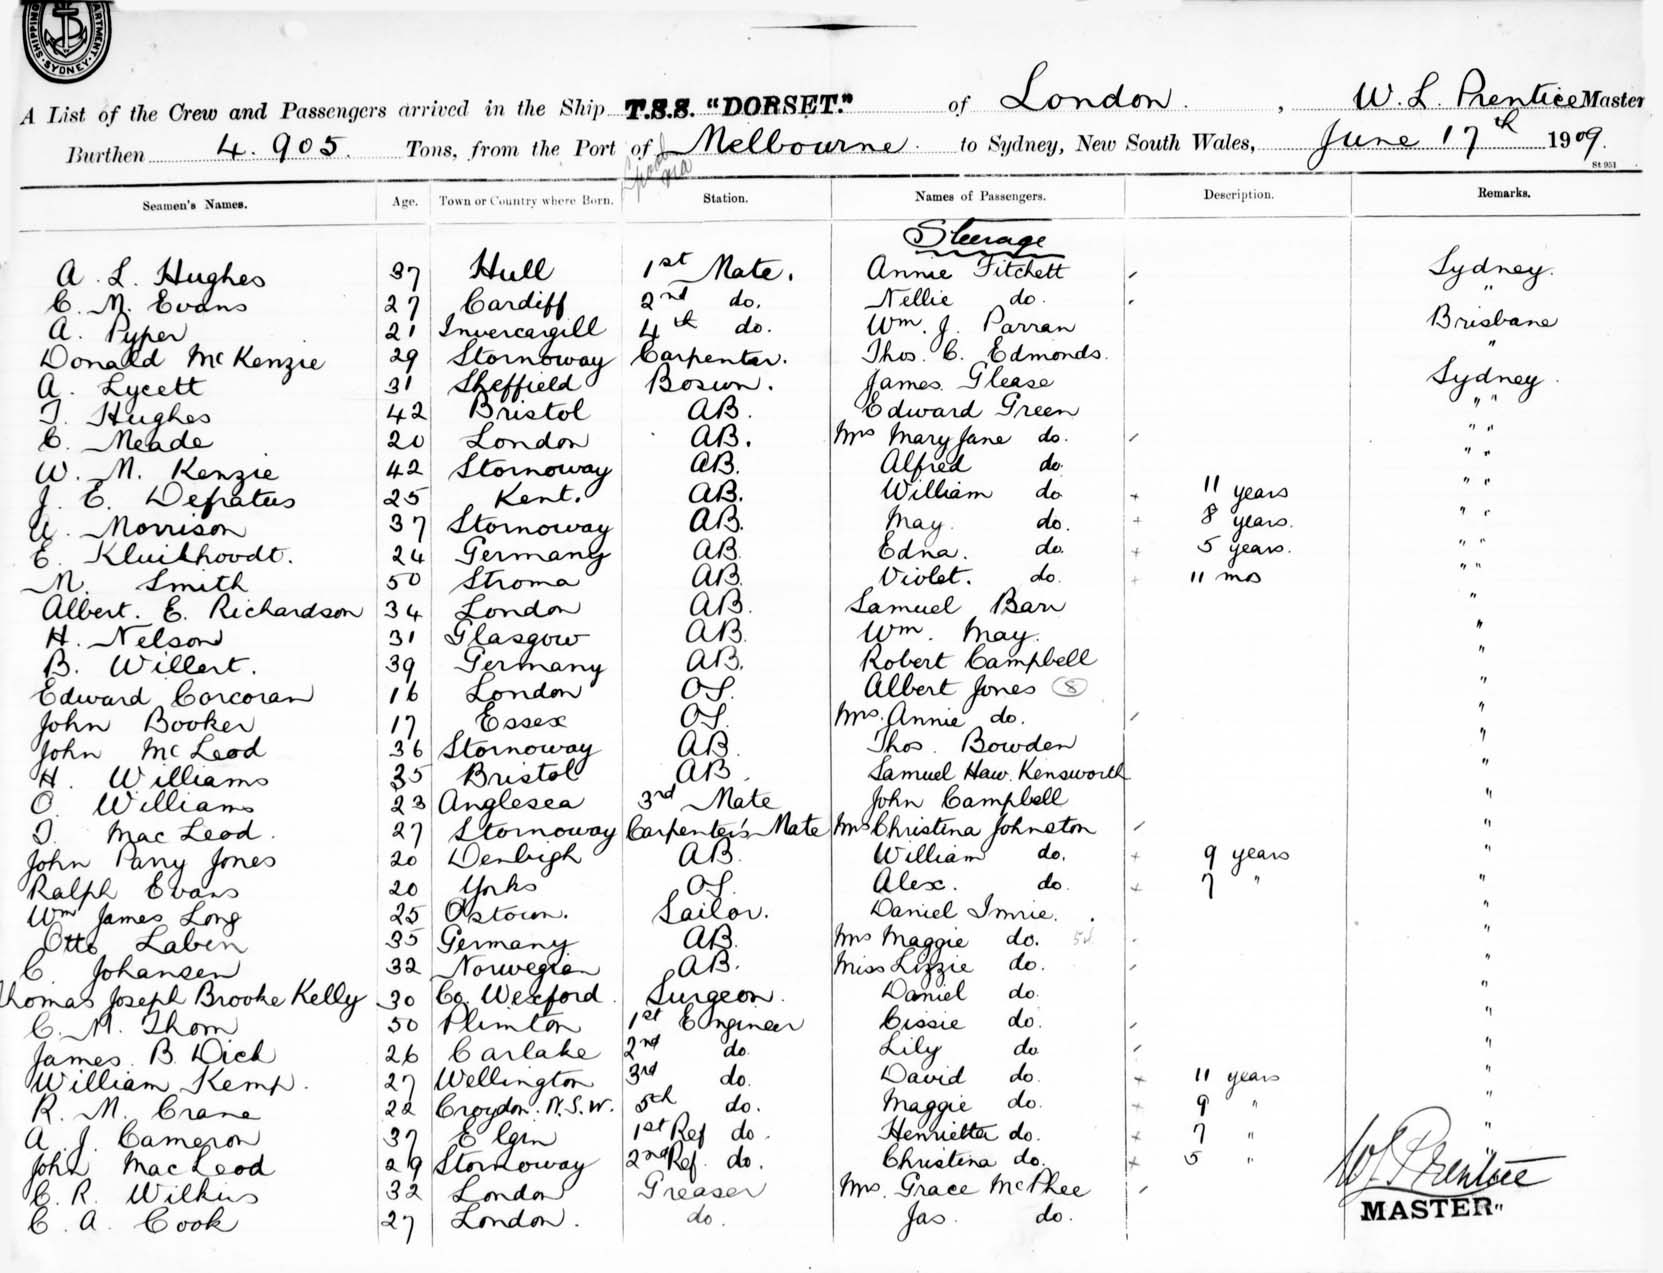 SHIPPING DEPARTMENT. SYDNEY.
A List of the Crew and Passengers arrived in the Ship T.S.S. "DORSET." of London. , W. L. Prentice Master
Burthen 4.905. Tons, from the Port of Melbourne. to Sydney, New South Wales, June 17th 1909.
St 951
Seamen's Names. Age. Town or Country where Born. Station. Names of Passengers. Description. Remarks.
Steerage
A. L. Hughes 37 Hull 1st Mate. Annie Fitchett Sydney.
C. M. Evans 27 Cardiff 2nd do. Nellie do. "
A. Pyper 21 Invercargill 4th do. Wm. J. Parran Brisbane
Donald McKenzie 29 Stornoway Carpenter. Thos. C. Edmonds. "
A. Lycett 31 Sheffield Bosun. James Glease Sydney.
T. Hughes 42 Bristol AB. Edward Green " "
C. Meade 20 London AB. Mrs Mary Jane do. " "
W. M. Kenzie 42 Stornoway AB. Alfred do. " "
J. E. Defratus 25 Kent. AB. William do 11 years " "
A. Morrison 37 Stornoway AB. May. do. 8 years. " "
E. Kluikhoodt. 24 Germany AB. Edna. do. 5 years. " "
M. Smith 50 Stroma AB. Violet. do. 11 mos " "
Albert. E. Richardson 34 London AB. Samuel Barr "
H. Nelson 31 Glasgow AB. Wm. May. "
B. Willert. 39 Germany AB. Robert Campbell "
Edward Corcoran 16 London OS. Albert Jones 8 "
John Booker 17 Essex OS. Mrs. Annie do. "
John McLeod 36 Stornoway AB. Thos. Bowden "
H. Williams 35 Bristol AB. Samuel Haw. Kensworth "
O. Williams 23 Anglesea 3rd Mate John Campbell "
T. MacLeod. 27 Stornoway Carpenter's Mate Mrs Christina Johnston "
John Parry Jones 20 Denbigh AB. William do. 9 years "
Ralph Evans 20 Yorks OS. Alex. do. 7 " "
Wm James Long 25 Ostown. Sailor. Daniel Imrie. "
Otto Laben 35 Germany AB. Mrs Maggie do. "
C. Johansen 32 Norwegian AB. Miss Lizzie do. "
Thomas Joseph Brooke Kelly 30 Co. Wexford. Surgeon. Daniel do. "
C. M. Thom 50 Plimton 1st Engineer Cissie do. "
James B. Dick 26 Carlake 2nd do. Lily do "
William Kemp. 27 Wellington 3rd do. David do. 11 years "
R. M. Crane 22 Croydon. N.S.W. 5th do. Maggie do. 9 " "
A J. Cameron 37 Elgin 1st Ref do. Henrietta do. 7 " "
John MacLeod 29 Stornoway 2nd Ref. do. Christina do. 5 "
C. R. Wilkins 32 London Greaser Mrs. Grace McPhee
C. A. Cook 27 London. do. Jas. do. "
W L Prentice
MASTER